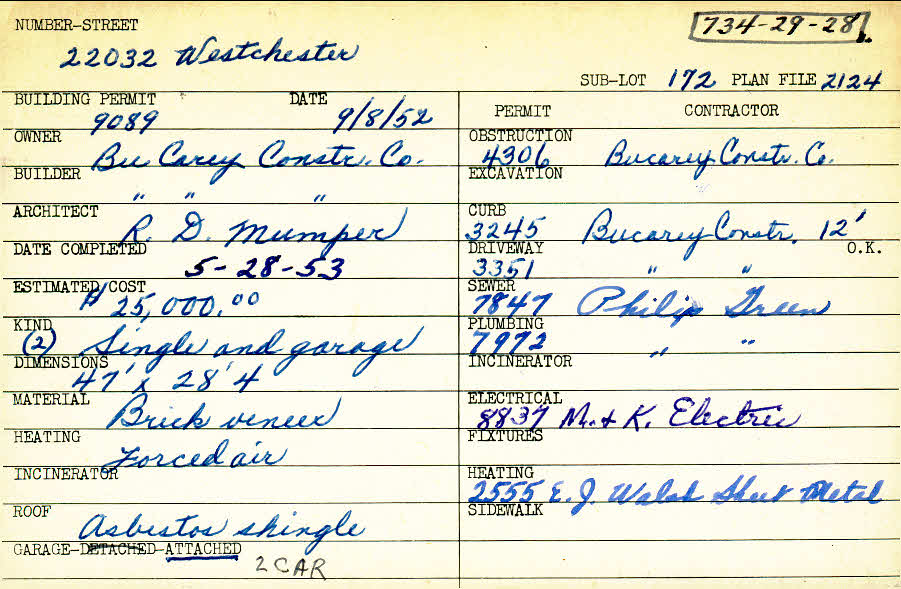 NUMBER-STREET
734-29-28
22032 Westchester
SUB-LOT 172 PLAN FILE 2124
BUILDING PERMIT DATE
9089 9/8/52
OWNER
Bu Carey Constr. Co.
BUILDER
" " "
ARCHITECT
R. D. Mumper
DATE COMPLETED
5-28-53
ESTIMATED COST
$25,000.00
KIND
(2) Single and garage
DIMENSIONS
47' x 28' 4
MATERIAL
Brick veneer
HEATING
Forced air
INCINERATOR
ROOF
Asbestos shingle
GARAGE-DETACHED-ATTACHED
2 CAR
PERMIT CONTRACTOR
OBSTRUCTION
4306 Bucarey Constr. Co.
EXCAVATION
CURB
3245 Bucarey Constr. 12'
DRIVEWAY O.K.
3351 " "
SEWER
7847 Philip Green
PLUMBING
7972 " "
INCINERATOR
ELECTRICAL
8837 M. + K. Electric
FIXTURES
HEATING
2555 E. J. Walsh Sheet Metal
SIDEWALK